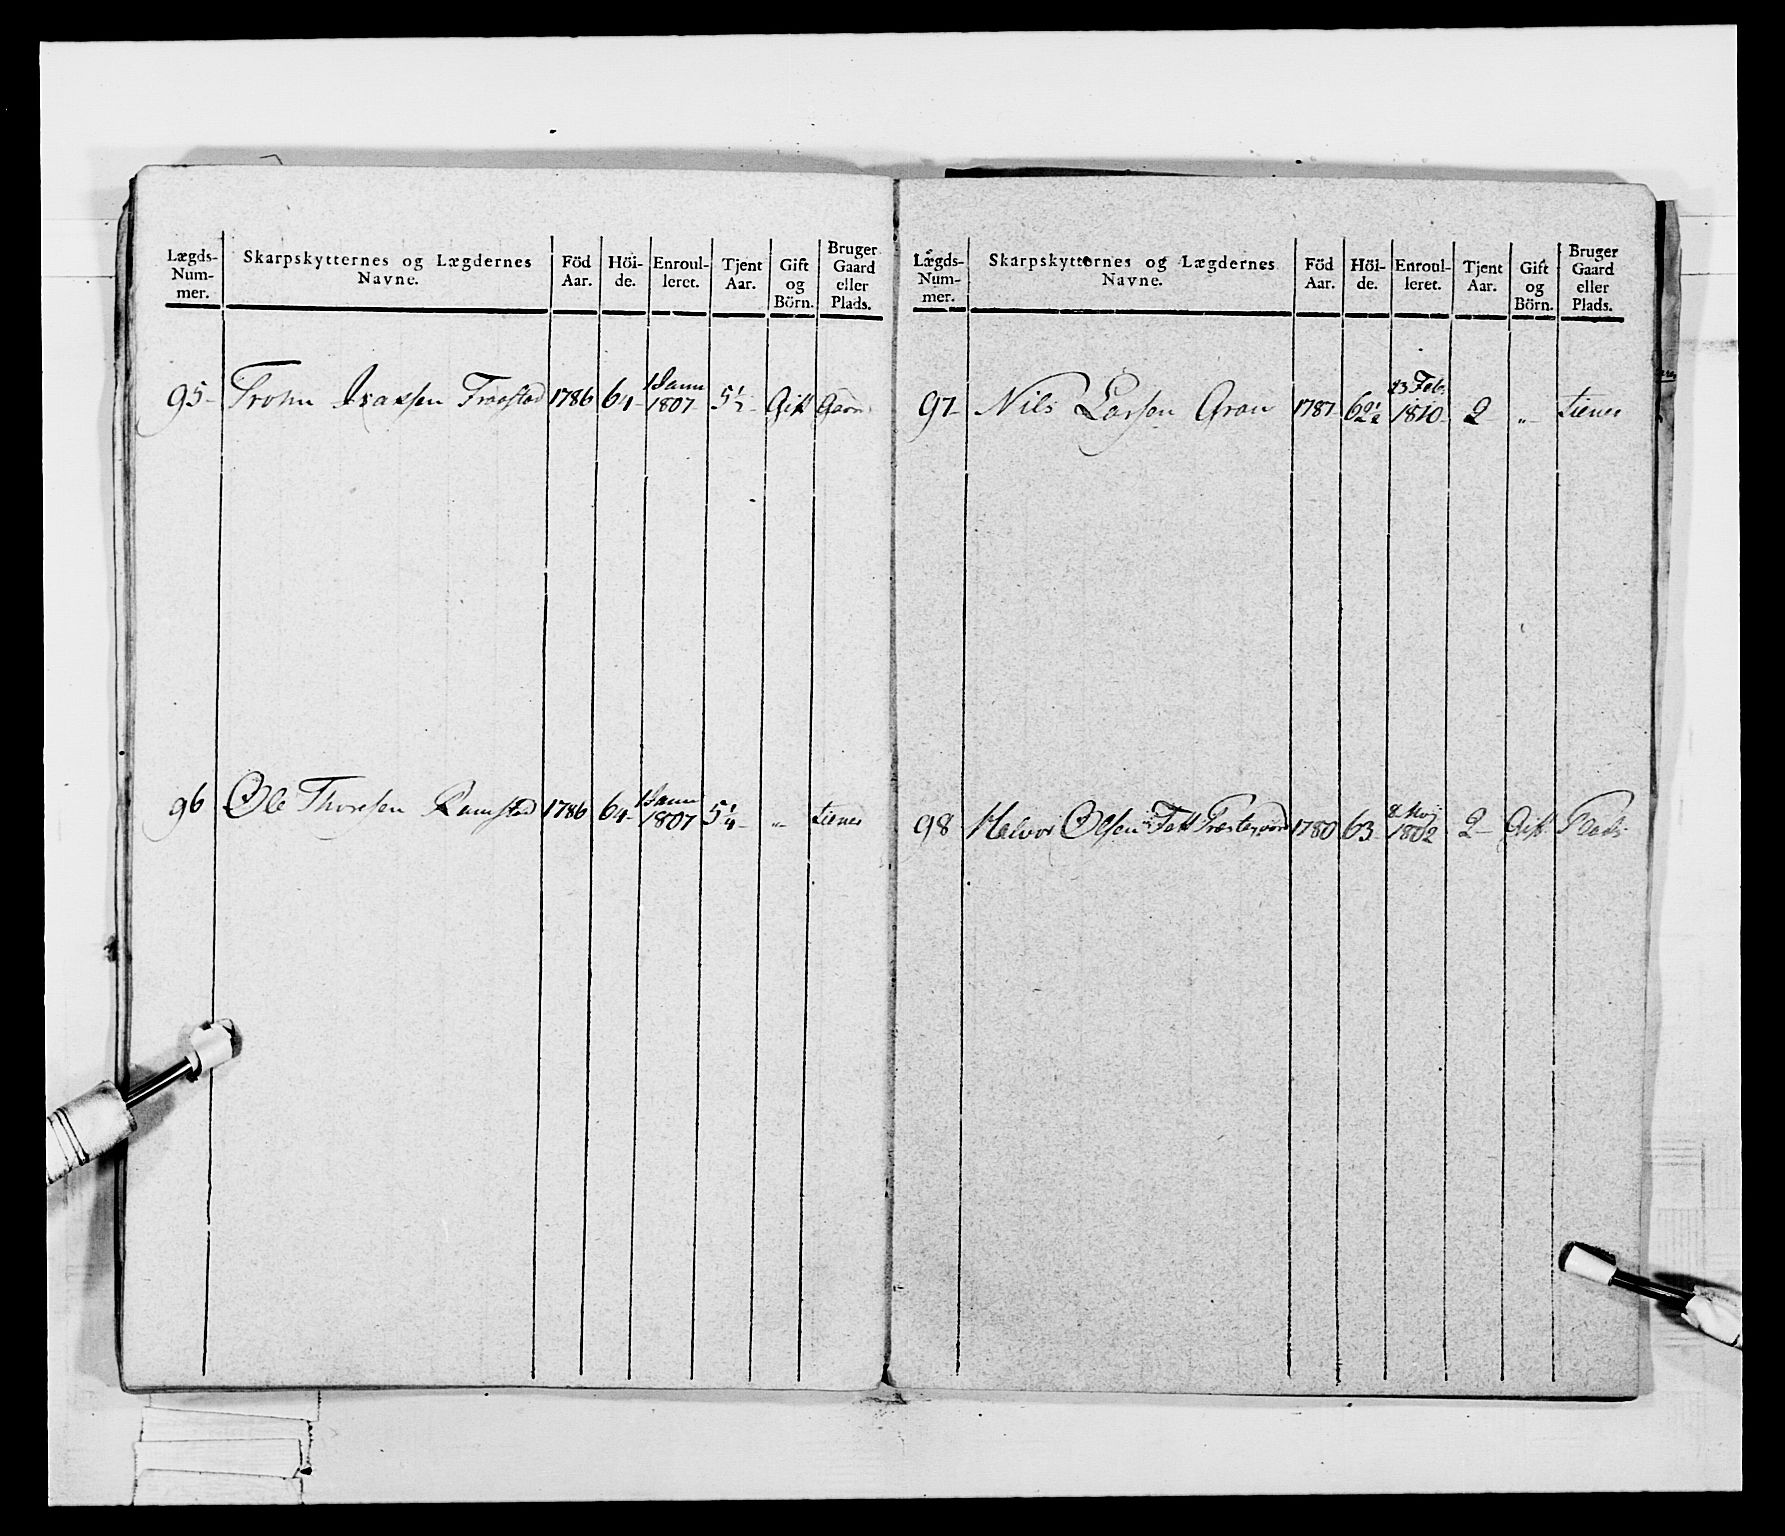 Lægds-Num-mer. Skarpskytternes og Lægdernes Navne. Föd Aar. Höi-de. Enroul-leret. Tjent Aar. Gift og Börn. Bruger Gaard eller Plads.
95- Isaksen 1786 64- 1 Janu 1807- Gift Gaard
96 Ole Thoresen Ramstad 1786 64- 1 Janu 1807 5¼- „- tiener
Lægds-Num-mer. Skarpskytternes og Lægdernes Navne. Föd Aar. Höi-de. Enroul-leret. Tjent Aar. Gift og Börn. Bruger Gaard eller Plads.
97- Nils Larsen Gran 1787 62½ 23 Feb. 1810- 2 „- tiener
98 Halvor Olsen 1780 63- 1802 2- Gift Plads